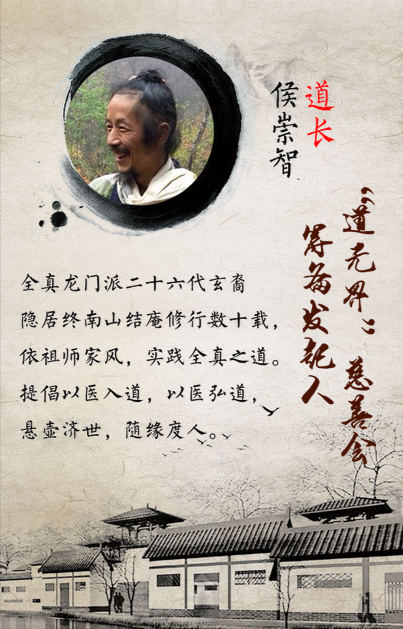 道长
侯崇智
“道无界”慈善会
筹备发起人
全真龙门派二十六代玄裔
隐居终南山结庵修行数十载，
依祖师家风，实践全真之道。
提倡以医入道，以医弘道，
悬壶济世，随缘度人。